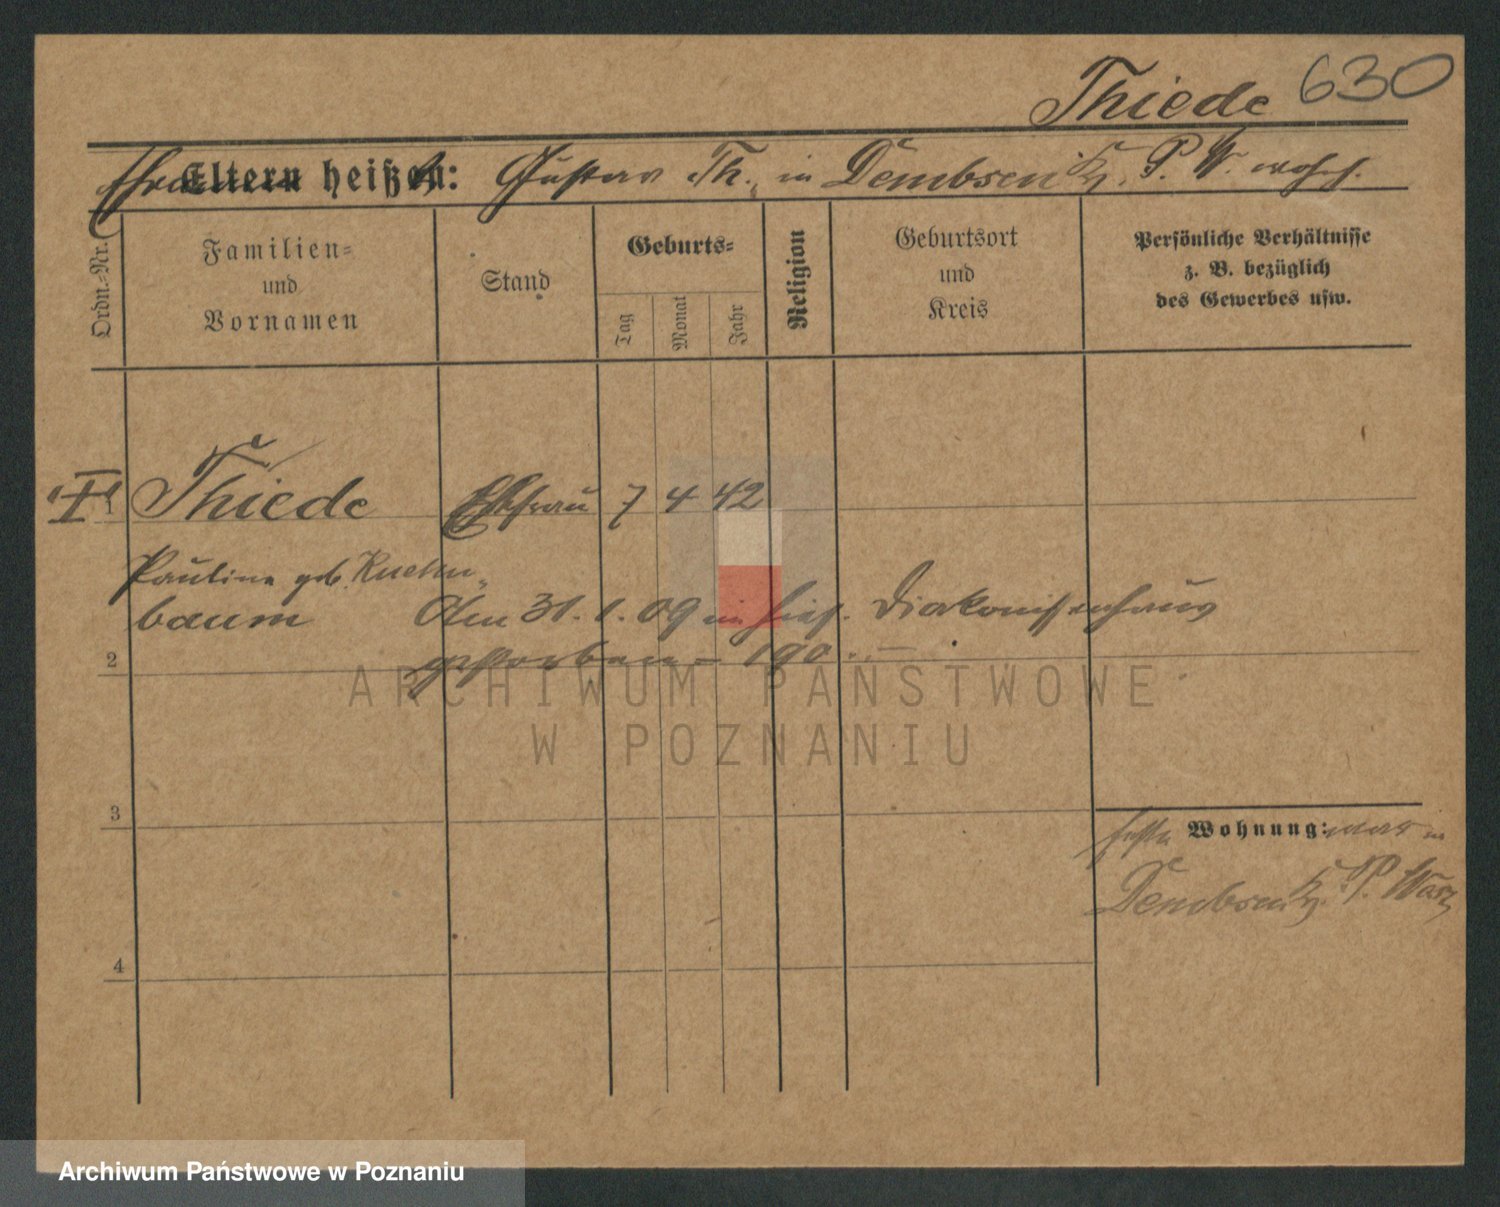 Thiede 630
Ehemann Eltern heißen: Gustav Th. in Dembsen Kr. P. W. wohnh.
Ordn.-Nr.
Familien-
und
Vornamen
Stand
Geburts-
Tag
Monat
Jahr
Religion
Geburtsort
und
Kreis
Persönliche Verhältnisse
z. B. bezüglich
des Gewerbes usw.
1 Thiede Ehefrau 7 4 42
Pauline geb.
baum Am 31. 1. 09 im hies. Diakonissenhaus
2 gestorben – 190
ARCHIWUM PAŃSTWOWE
W POZNANIU
3
Wohnung: war in
Dembsen Kr. P. West
4
Archiwum Państwowe w Poznaniu